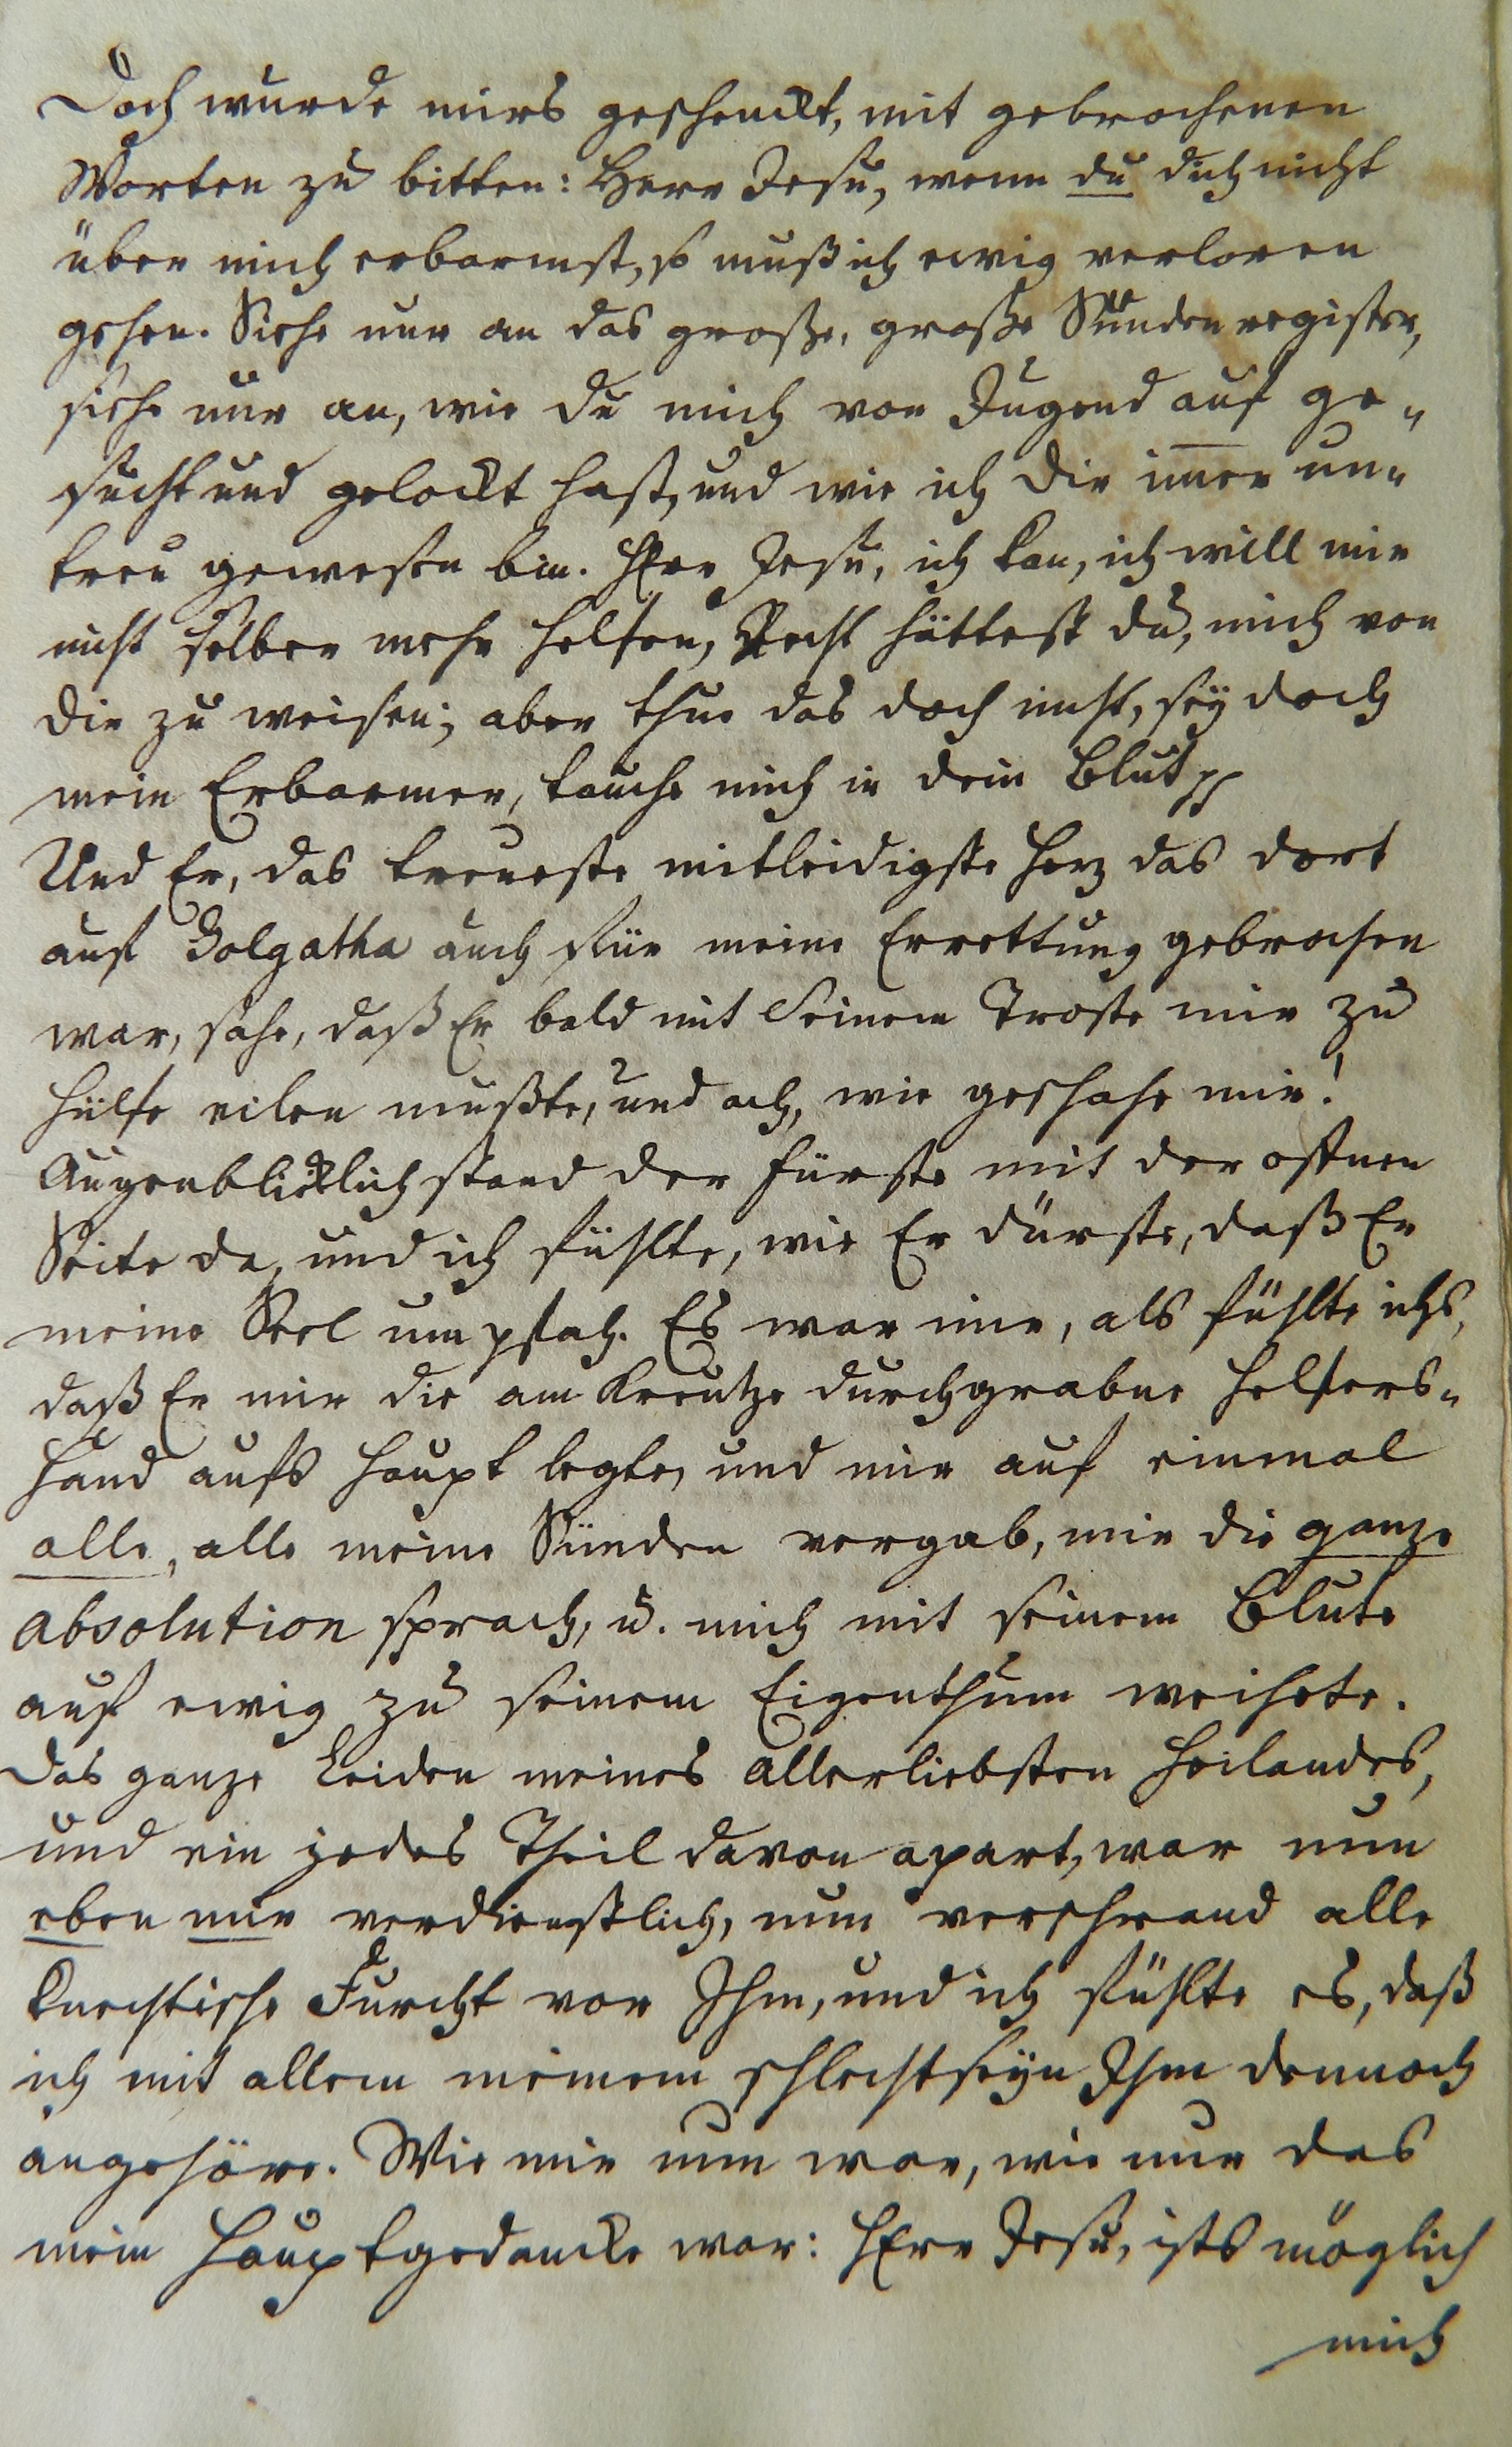 Doch wurde mirs geschenckt, mit gebrochenen
Worten zu bitten: Herr Jesu, wenn du dich nicht
über mich erbarmst, so muß ich ewig verloren
gehen. Siehe nur an das große, große Sündenregister,
siehe nur an, wie du mich von Jugend auf ge-
sucht und gelockt hast, und wie ich dir im̄er un-
treu gewesen bin. HErr Jesu, ich kan, ich will mir
nicht selber mehr helfen, Recht hättest du, mich von
dir zu weisen; aber thue das doch nicht, sey doch
mein Erbarmer, tauche mich in dein Blut pp
Und Er, das treueste mitleidigste Herz das dort
auf Golgatha auch für meine Errettung gebrochen
war, sahe, daß Er bald mit Seinem Troste mir zu
Hülfe eilen mußte, und ach, wie geschahe mir!
Augenblicklich stand der Fürste mit der offnen
Seite da, und ich fühlte, wie Er dürste, daß Er
meine Seel umpfah. Es war mir, als fühlte ichs,
daß Er mir die am Kreutze durchgrabne Helfers-
Hand aufs Haupt legte, und mir auf einmal
alle, alle meine Sünden vergab, mir die ganze
absolution sprach, u. mich mit seinem Blute
auf ewig zu seinem Eigenthum weihete.
Das ganze Leiden meines allerliebsten Heilandes,
und ein jedes Theil davon apart, war nun
eben mir verdienstlich, nun verschwand alle
knechtische Furcht vor Ihm, und ich fühlte es, daß
ich mit allem meinem schlechtseyn Ihm dennoch
angehöre. Wie mir nun war, wie nur das
mein Hauptgedancke war: HErr Jesu, ists möglich
mich